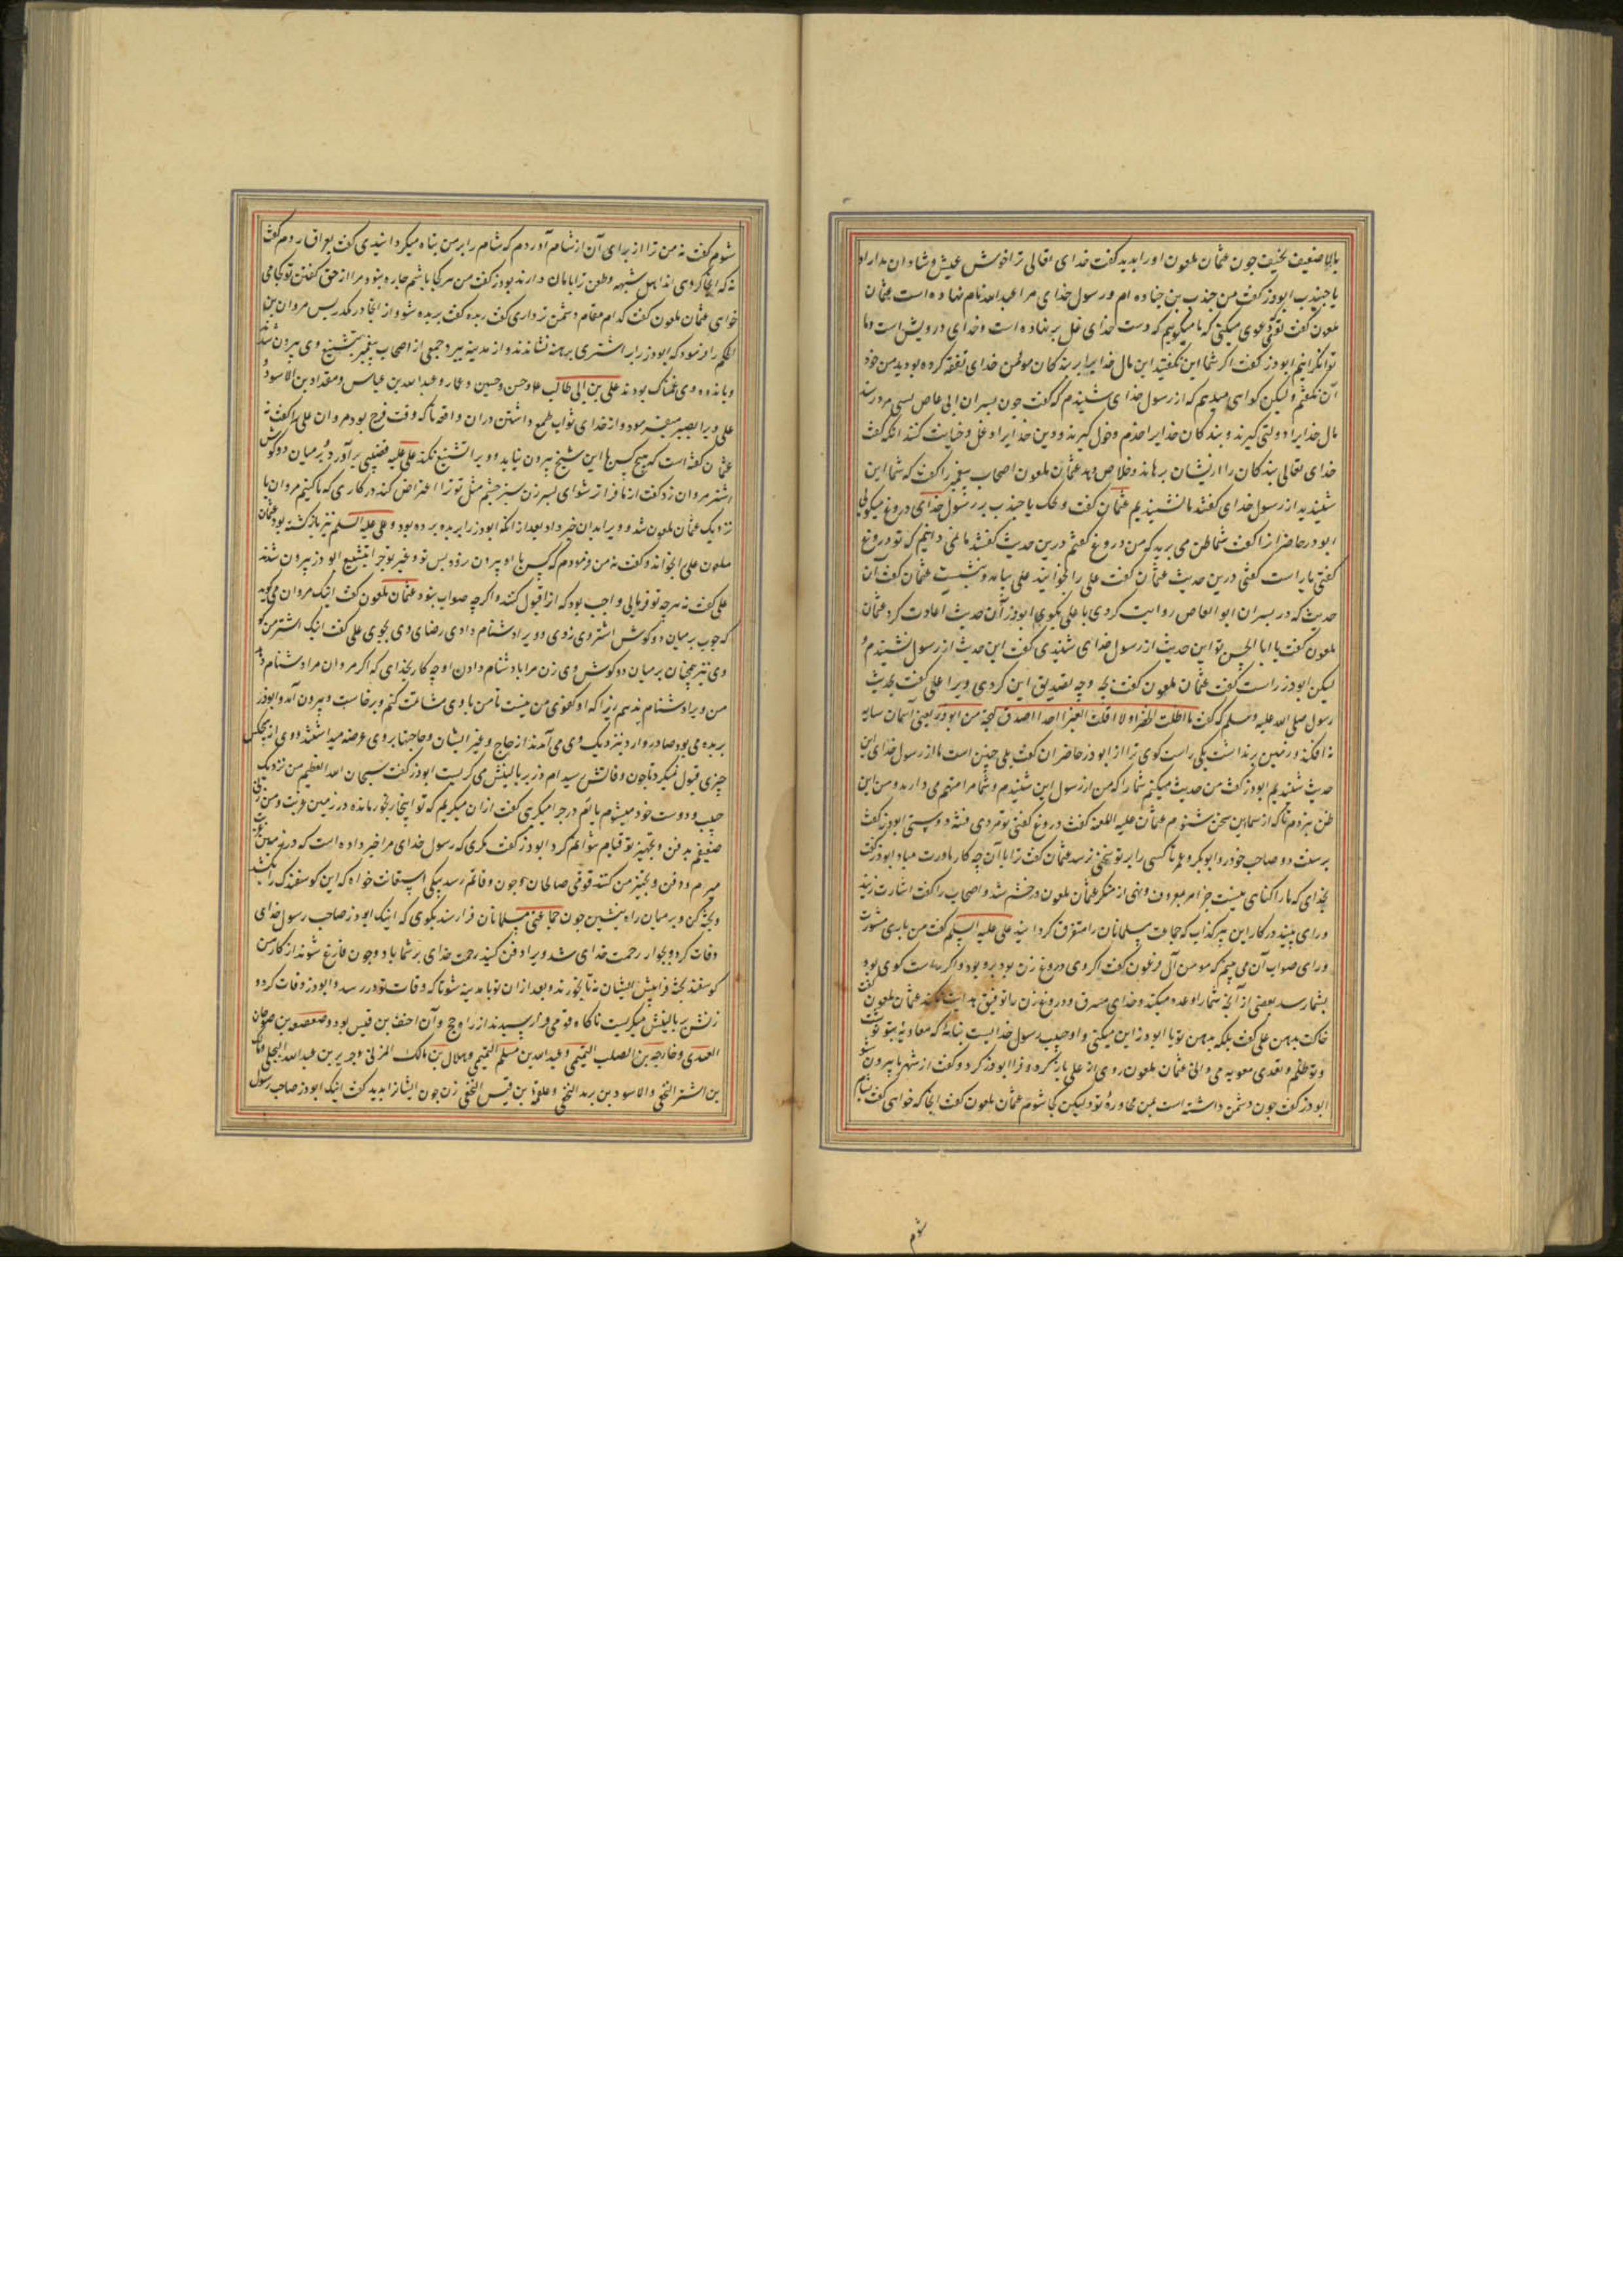 بالا ضعیف نحیف چون عثمان ملعون اورا بدید گفت خدای تعالی ترا خوش عیش و شادان مداراد
یا جنیدب ابوذر گفت من جندب بن جناده ام ورسول خدای مرا عبدالله نام نهاده است عثمان
ملعون گفت تو دعوی میکنی که ما میگوییم که دست خدای غل بر نهاده است وخدای درویش است وما
توانکرانیم ابوذر گفت اگر شما این نگفتید این مال خدایرا بر بندکان مومن خدای نفقه کرده بودید من خود
آن نگفتم ولیکن گواهی میدهم که از رسول خدای شنیدم که گفت چون پسران ابی عاص بسی مرد رسند
مال خدایرا دولتی گیرند وبندکان خدایرا خدم وخول گیرند ودین خدایرا دغل وخیانت کنند آنکه گفت
خدای تعالی بندکان را از ایشان برهاند وخلاص دهد عثمان ملعون اصحاب پیغمبر را گفت که شما این
شنیدید از رسول خدای گفتند ما نشنیدیم عثمان گفت ویحک یا جندب بر رسول خدای دروغ میگویی
ابوذر حاضرانرا گفت شما ظن می برید که من دروغ گفتم درین حدیث گفتند ما نمی دانیم که تو دروغ
گفتی یا راست گفتی درین حدیث عثمان گفت علی را بخوانید علی بیامد وبنشست عثمان گفت آن
حدیث که در پسران ابوالعاص روایت کردی با علی بگوی ابوذر آن حدیث اعادت کرد عثمان
ملعون گفت یا ابا الحسن تو این حدیث از رسول خدای شنیدی گفت این حدیث از رسول نشنیدم و
لیکن ابوذر راست گفت عثمان ملعون گفت بچه وجه تصدیق این کردی ویرا علی گفت بحدیث
رسول صلی الله علیه وسلم که گفت ما اظلت الخضرا ولا اقلت الغبرا احدا اصدق لهجة من ابوذر یعنی آسمان سایه
نه افکند وزمین برنداشت یکی راست کوی ترا از ابوذر حاضران گفت بلی چنین است ما از رسول خدای این
حدیث شنیدیم ابوذر گفت من حدیث میکنم شما را که من از رسول این شنیدم وشما مرا متهم می دارید ومن این
ظن نبردم تا که از شما این سخن شنوم عثمان علیه اللعنه گفت دروغ گفتی تو مردی فتنه دوستی ابوذر گفت
بر سنت دو صاحب خود رو ابوبکر وعمر تا کسی را بر تو سخنی نرسد عثمان گفت ترا با آن چه کار مادرت مباد ابوذر گفت
بخدای که ما را گناهی نیست جز امر معروف ونهی از منکر عثمان ملعون در خشم شد واصحاب را گفت اشارت زنید
ورای بینید در کار این پیر کذاب که جماعت مسلمانان را متفرق گردانید علی علیه السلم گفت من باری مشورت
ورای صواب آن می بینم که مومن آل فرعون گفت اگر وی دروغ زن بود برو بود واگر راست کوی بود
بشما رسد بعضی از آنچه شما را وعده میکند وخدای مسرف ودروغ زن را توفیق هدایت نکند عثمان ملعون گفت
خاکت بدهن علی گفت بلکه بدهن تو با ابوذر این میکنی واو حبیب رسول خداست بنامه که معاویه بتو نوشت
وتو ظلم وتعدی معویه می دانی عثمان ملعون روی از علی باز کرد وفرا ابوذر کرد وگفت از شهر ما بیرون شو
ابوذر گفت چون دشمن داشته است بمن محاورهٔ تو ولیکن کجا شوم عثمان ملعون گفت آنجا که خواهی گفت بشام
شوم
شوم گفت نه من ترا از برای آن از شام آوردم که شام را بر من تباه میکردانیدی گفت بعراق روم گفت
نه که اینجا کردی اندر اهل شبهه وطعن ترا بامان دارند ابوذر گفت من هرکجا باشم چاره نبود مرا از حق گفتن تو کجا می
خواهی عثمان ملعون گفت کدام مقام دشمن تر داری گفت ربذه گفت بربذه شو واز آنجا در مگذر پس مروان بن
الحکم را فرمود که ابوذر را بر اشتری برهنه نشاندند واز مدینه ببرد وجمعی از اصحاب پیغمبر بتشییع وی بیرون شدند
وباندوه وی غمناک بودند علی بن ابی طالب عاوحسن وحسین وعمار وعبدالله بن عباس ومقداد بن الاسود و
علی ویرا بصبر میفرمود واز خدای ثواب طمع داشتن دران واقعه تا که وقت فرج بود مروان علی را گفت نه
عثمان گفته است که هیچ کس با این شیخ بیرون نیاید و ویرا تشییع نکند علی علیه قضیبی بر آورد وبر میان دو گوش
اشتر مروان زد گفت از ما فراتر شو ای پسر زن سبز چشم مثل تو ترا اعتراض کند در کاری که ما کنیم مروان با
نزدیک عثمان ملعون شد وویرا بدان خبر داد بعد از آنکه ابوذر را بربذه برده بود وعلی علیه السلم نیز باز گشته بود عثمان
ملعون علی را بخواند وگفت نه من فرمودم که کس با او بیرون رود پس تو وغیر تو چرا بتشییع ابوذر بیرون شدند
علی گفت نه هرچه تو فرمایی واجب بود که از تو قبول کنند واگرچه صواب نبود عثمان ملعون گفت اینک مروان می گوید
که چوب بر میان دو گوش اشتر وی زدی وویرا دشنام دادی رضای وی بجوی علی گفت اینک اشتر من گو
وی نیز همچنان بر میان دو گوش وی زن مرا با دشنام دادن او چه کار بخدای که اگر مروان مرا دشنام دهد
من ویرا دشنام ندهم زیرا که او کفوی من نیست تا من با وی مشاتمت کنم وبرخاست وبیرون آمد وابوذر
بربذه می بود صادر ووارد بنزدیک وی می آمدند از حاج وغیر ایشان وحاجتها بر وی عرضه میداشتند ووی از هیچکس
چیزی قبول نمیکرد تا چون وفاتش رسید ام ذر بر بالینش می گریست ابوذر گفت سبحان الله العظیم من نزدیک
حبیب ودوست خود میشوم باتو درچرا میگریی گفت ازان میگریم که تو اینجا رنجور مانده در زمین غربت ومن زنی
ضعیفم بدفن وتجهیز تو قیام نتوانم کرد ابوذر گفت مگری که رسول خدای مرا خبر داده است که در زمین غربت
میرم ودفن وتجهیز من کنند قومی صالحان وچون وفاتم رسد بیکی استعانت خواه که این گوسفندک را بکشد
وپخته کن وبر میان راه بنشین چون جماعتی مسلمانان فرا رسند بگوی که اینک ابوذر صاحب رسول خدای
وفات کرد وبجوار رحمت خدای شد ویرا دفن کنید رحمت خدای بر شما باد وچون فارغ شوند از کار من
گوسفند پخته فرا پیش ایشان نه تا بخورند وبعد ازان تو با مدینه شو تا که وفات تو در رسد وابوذر وفات کرد و
زنش بر بالینش میگریست ناگاه قومی فرا رسیدند از راه حج وآن احنف بن قیس بود وصعصعه بن صوحان
العبدی وخارجه بن الصلب التمیمی وعبدالله بن مسلم التمیمی وهلال بن مالک المزنی وجریر بن عبدالله البجلی ومالک
بن اشتر النخعی والاسود بن یزید النخعی وعلقمه بن قیس النخعی زن چون ایشانرا بدید گفت اینک ابوذر صاحب رسول